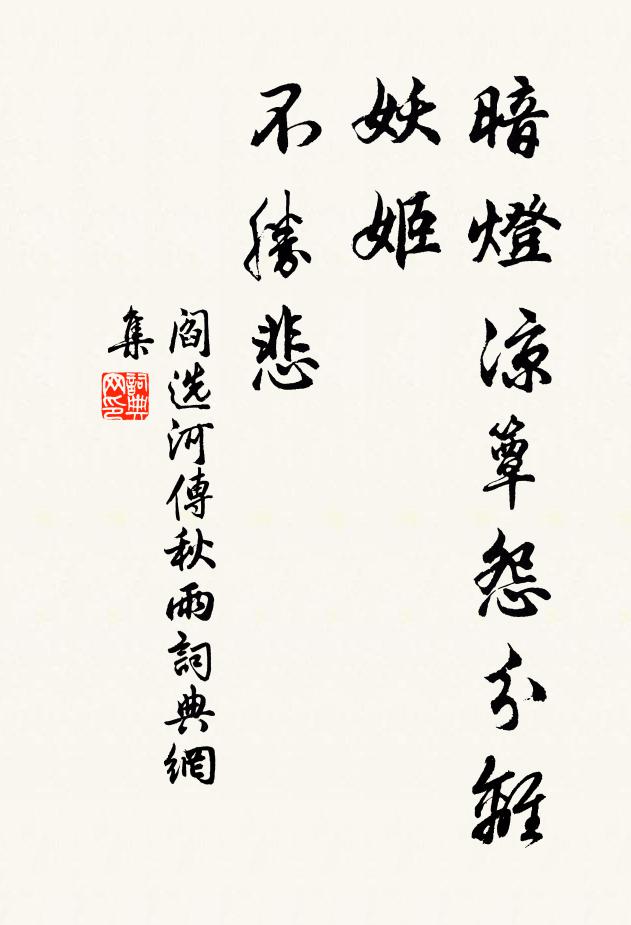 暗燈凉簟怨分離
妖姬
不勝悲
閻选河傳秋雨詞典網
集
詞典网印